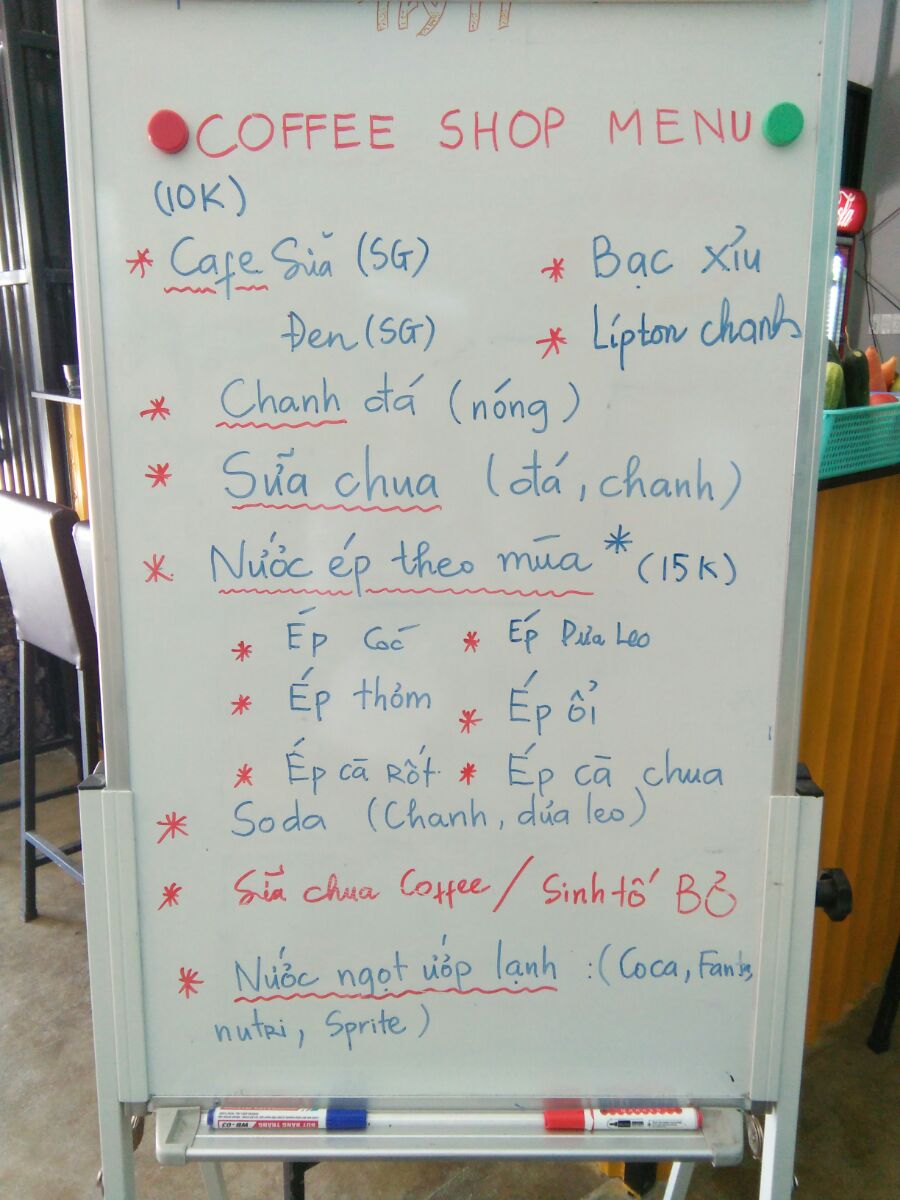 COFFEE SHOP MENU
(10K)
* Cafe Sữa (SG) * Bạc xỉu
Đen (SG) * Lipton chanh
* Chanh đá (nóng)
* Sữa chua (đá, chanh)
* Nước ép theo mùa * (15K)
* Ép Cóc * Ép Dưa Leo
* Ép thơm * Ép ổi
* Ép cà Rốt * Ép cà chua
* Soda (Chanh, dưa leo)
* Sữa chua Coffee / Sinh tố BƠ
* Nước ngọt ướp lạnh : (Coca, Fanta,
nutri, Sprite)
BÚT BẢNG TRẮNG WB-03